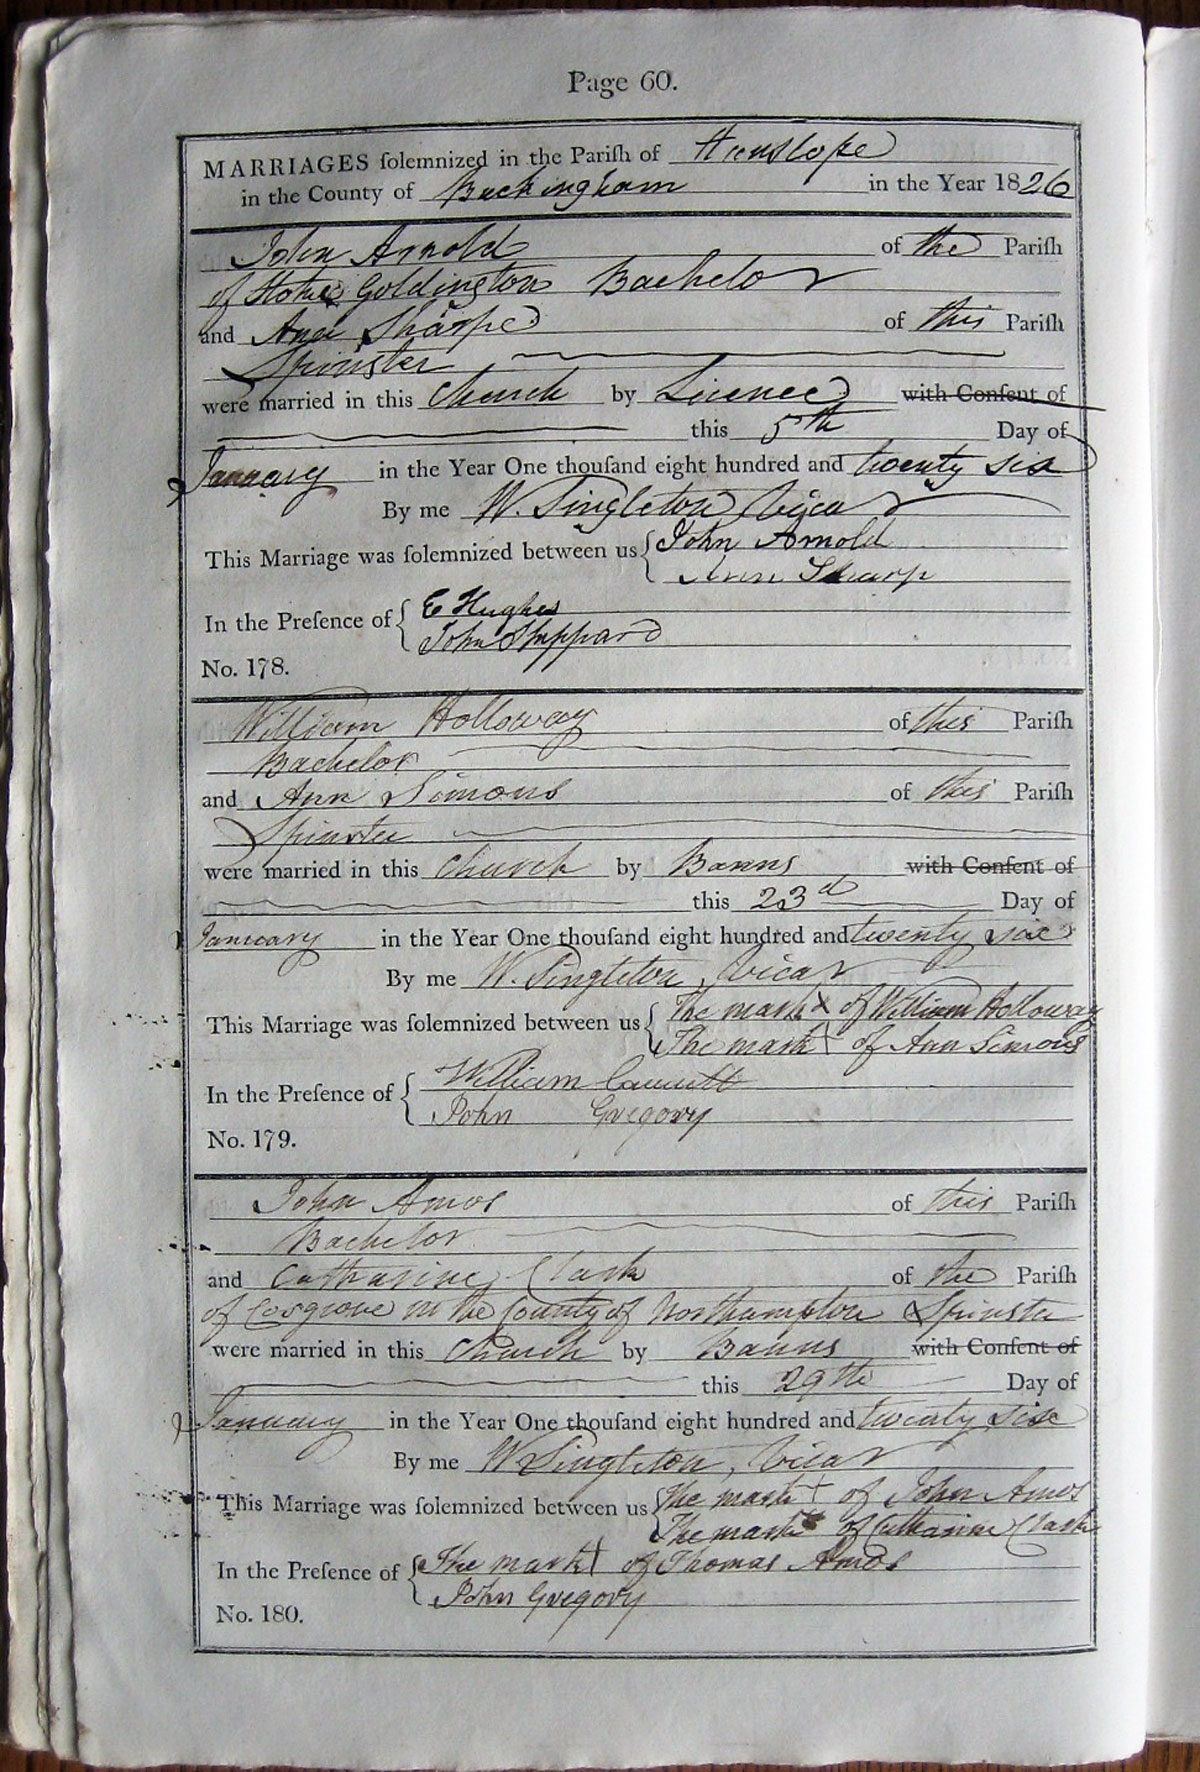 Page 60.
MARRIAGES ſolemnized in the Pariſh of Hanslope
in the County of Buckingham in the Year 1826
John Arnold of the Pariſh
of Stoke Goldington Bachelor
and Ann Sharpe of this Pariſh
Spinster
were married in this Church by Licence with Conſent of
this 5th Day of
January in the Year One thouſand eight hundred and twenty six
By me W. Singleton Vicar
This Marriage was ſolemnized between us { John Arnold
Ann Sharp
In the Preſence of { E Hughes
John Sheppard
No. 178.
William Holloway of this Pariſh
Bachelor
and Ann Simons of this Pariſh
Spinster
were married in this Church by Banns with Conſent of
this 23d Day of
January in the Year One thouſand eight hundred and twenty six
By me W. Singleton, Vicar
This Marriage was ſolemnized between us { The mark x of William Holloway
The mark + of Ann Simons
In the Preſence of { William
John Gregory
No. 179.
John Amos of this Pariſh
Bachelor
and Catharine Clark of the Pariſh
of Cosgrove in the County of Northampton Spinster
were married in this Church by Banns with Conſent of
this 29th Day of
January in the Year One thouſand eight hundred and twenty six
By me W Singleton, Vicar
This Marriage was ſolemnized between us { The mark + of John Amos
The mark of Catharine Clark
In the Preſence of { The mark + of Thomas Amos
John Gregory
No. 180.